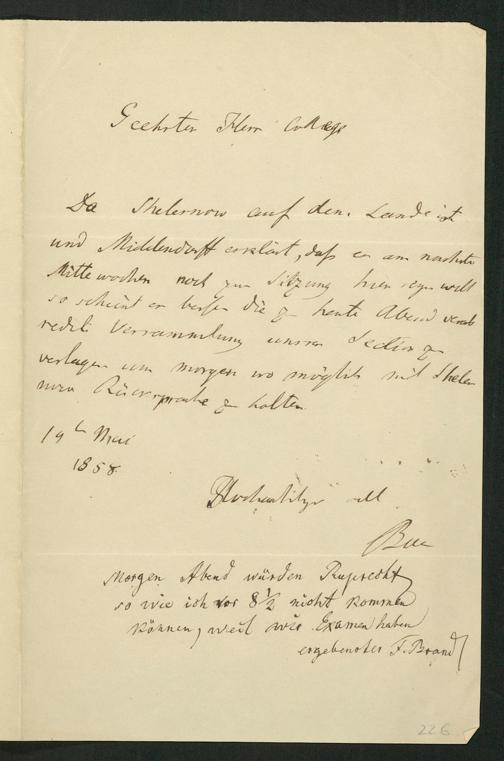 Geehrter Herr College
Da Shelesnow auf dem Lande ist
und Middendorff erklärt, daß er am nächsten
Mittewochen noch zur Sitzung hier seyn will
so scheint es besser die zu heute Abend verab
redete Versammlung unsrer Section zu
verlegen um morgen wo möglich mit Sheles
now Rücksprache zu halten.
19 Mai
1858
Hochachtungsvoll
Baer
Morgen Abend würden Ruprecht
so wie ich vor 8½ nicht kommen
können, weil wir Examen haben
ergebenster F. Brandt
226